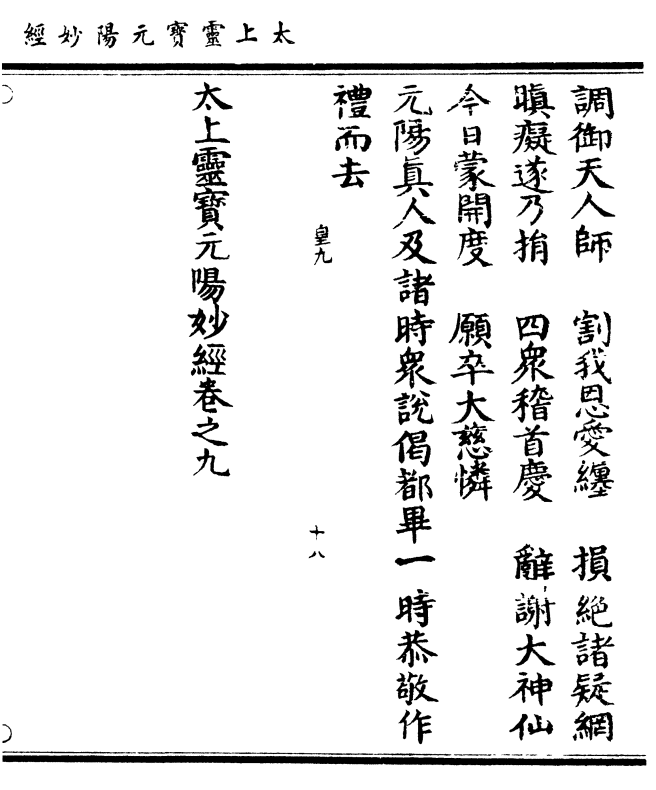 太上靈寳元陽妙經
調御天人師　割我恩愛纏　損絶諸疑網
瞋癡遂乃捐　四衆稽首慶　辭謝大神仙
今日蒙開度　願卒大慈憐
元陽真人及諸時衆說偈都畢一時恭敬作
禮而去
皇九　十八
太上靈寳元陽妙經卷之九